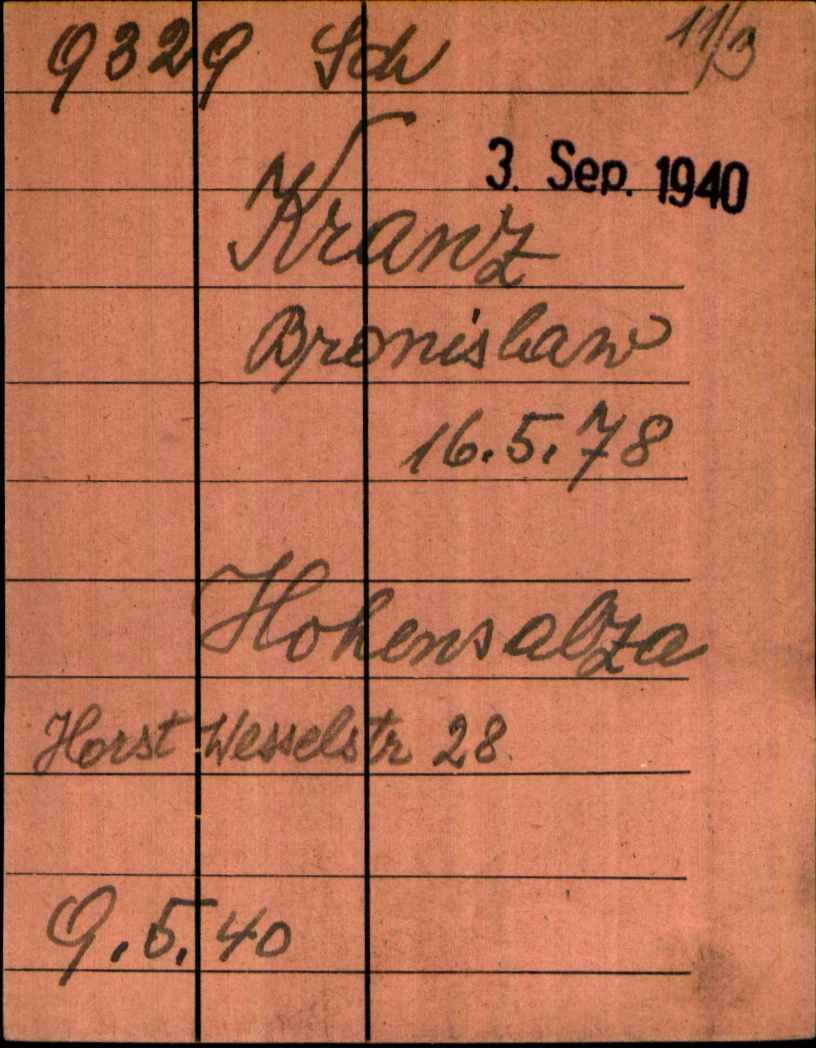 9329 Sch 11/3
3. Sep. 1940
Kranz
Bronislaw
16.5.78
Hohensalza
Horst Wesselstr 28.
9.5.40